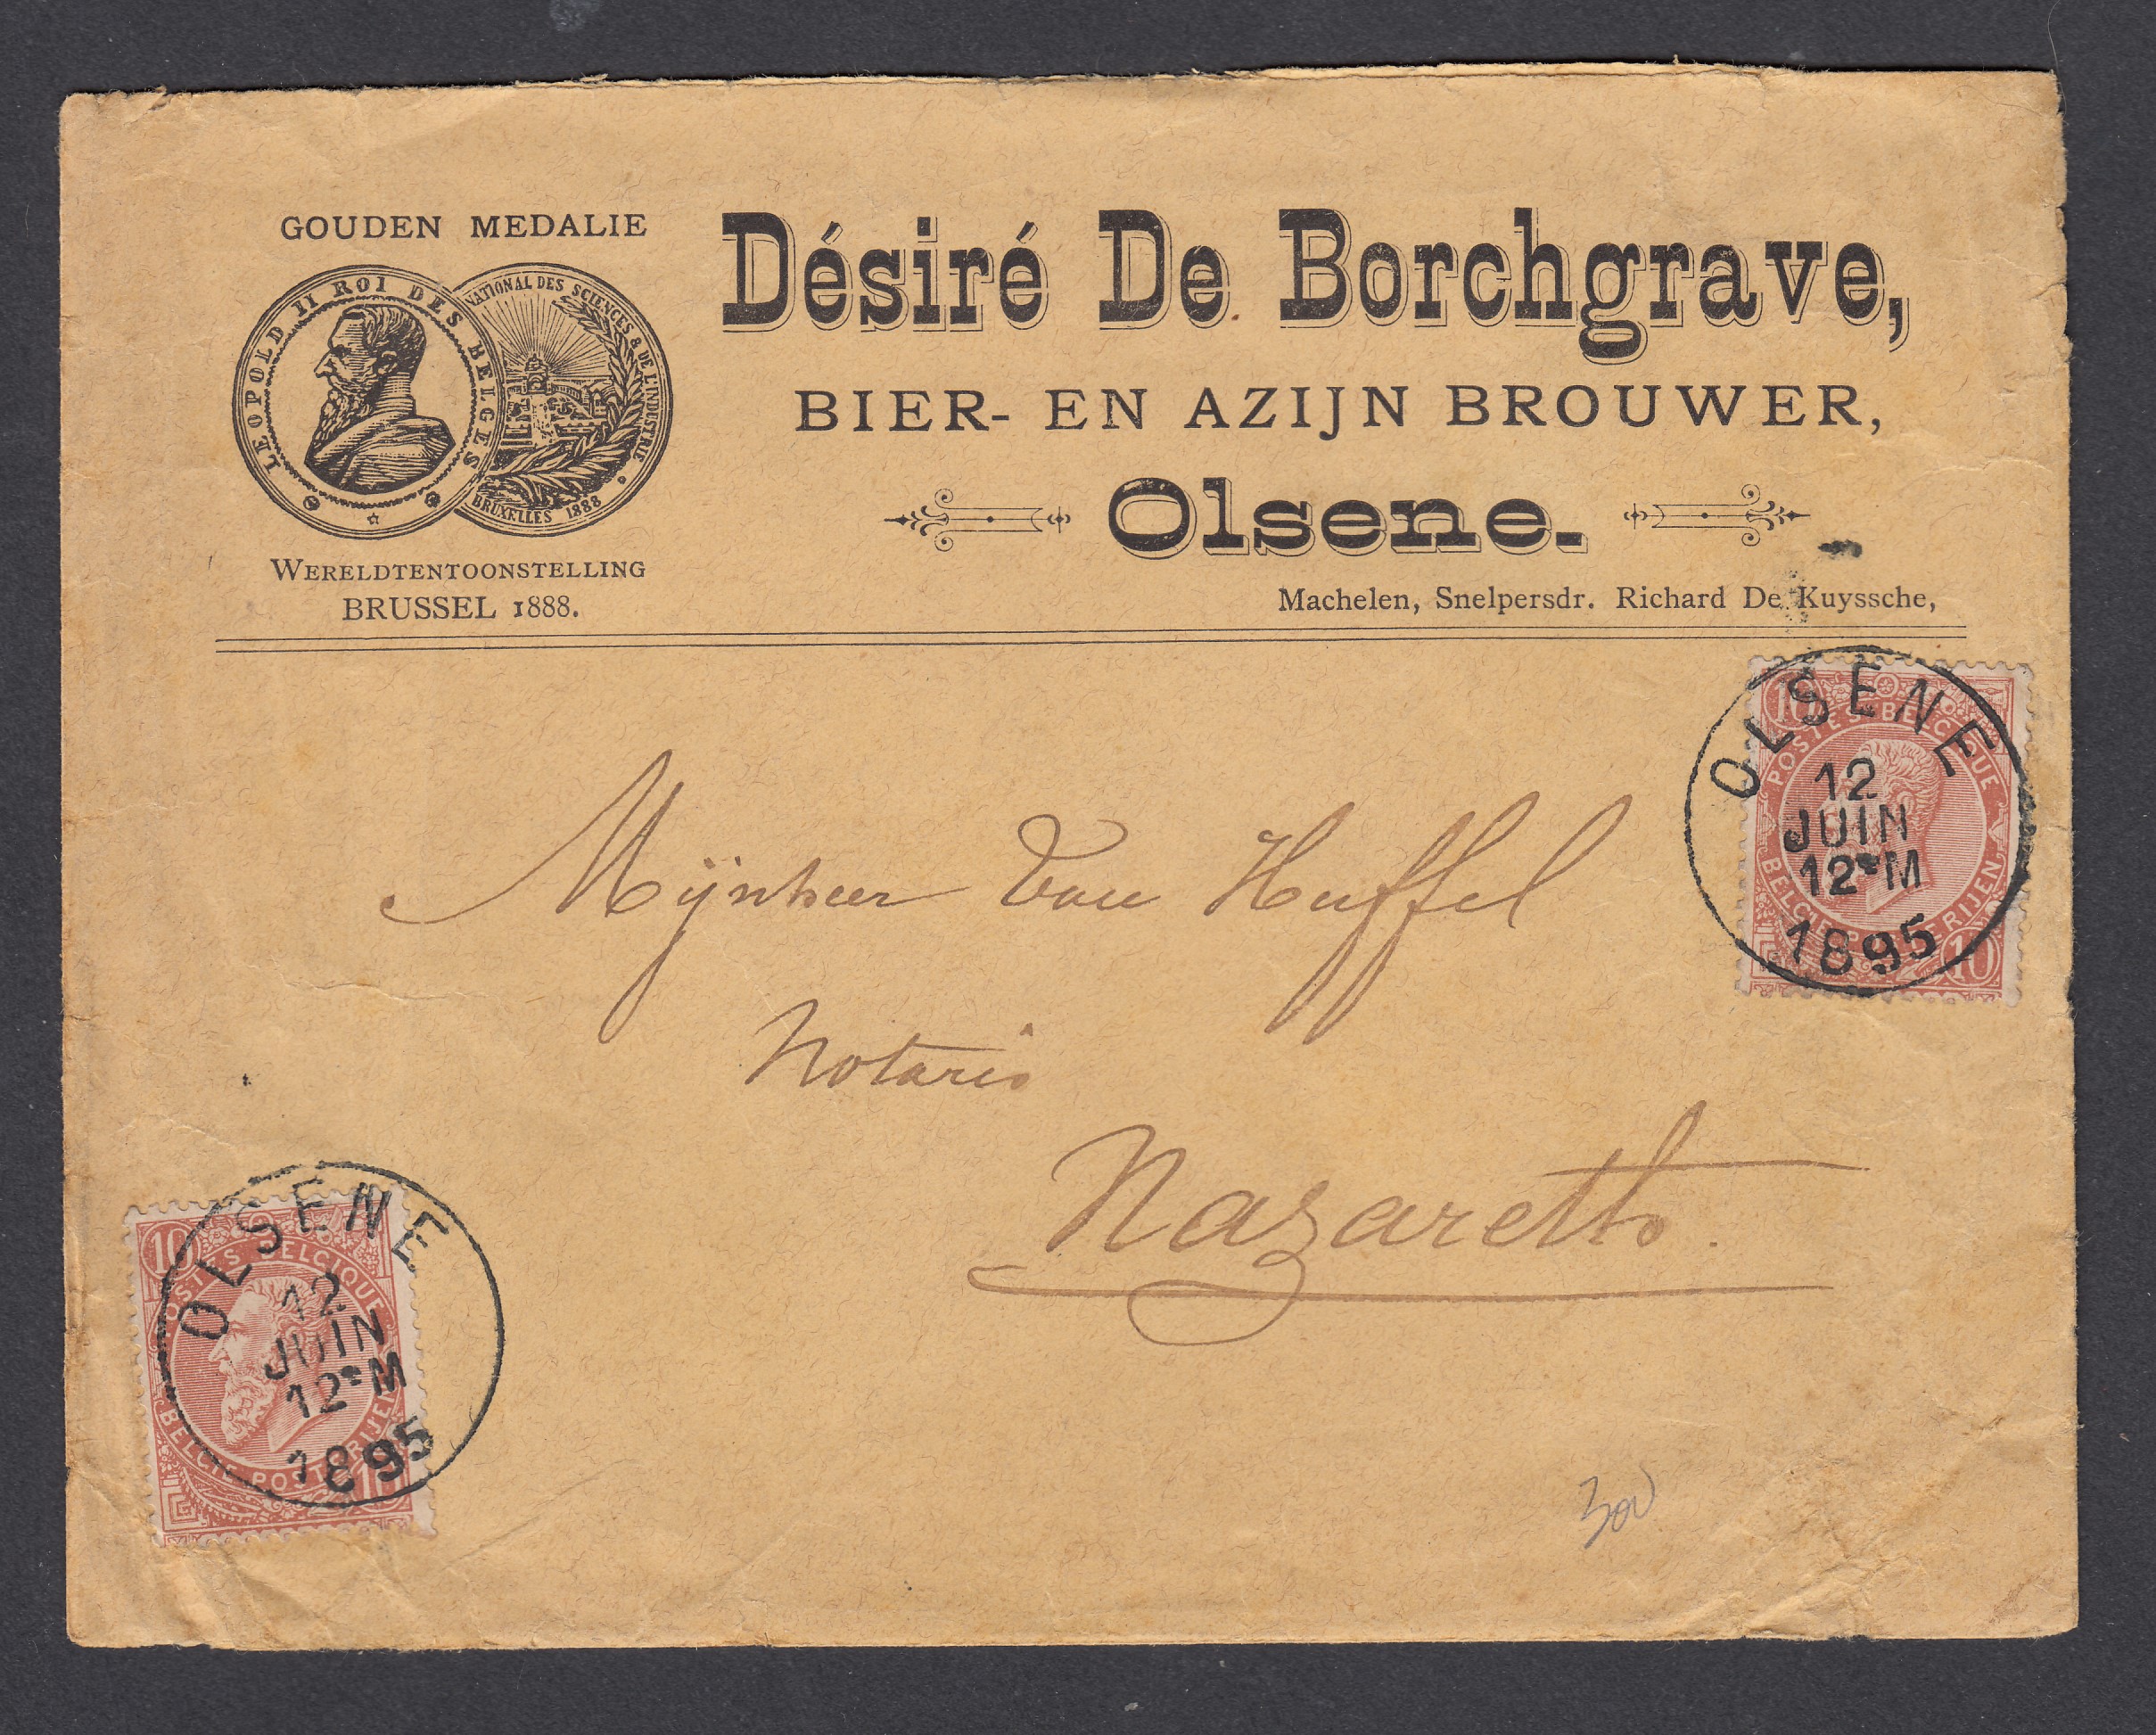 GOUDEN MEDALIE
LEOPOLD II ROI DES BELGES
NATIONAL DES SCIENCES & DE L'INDUSTRIE
BRUXELLES 1888
WERELDTENTOONSTELLING
BRUSSEL 1888.
Désiré De Borchgrave,
BIER- EN AZIJN BROUWER,
Olsene.
Machelen, Snelpersdr. Richard De Kuyssche,
10
POSTES BELGIQUE
BELGIE POSTERIJEN
10
OLSENE
12
JUIN
12 M
1895
Mijnheer Van Huffel
Notaris
Nazareth.
10
POSTES BELGIQUE
BELGIE POSTERIJEN
10
OLSENE
12
JUIN
12 M
1895